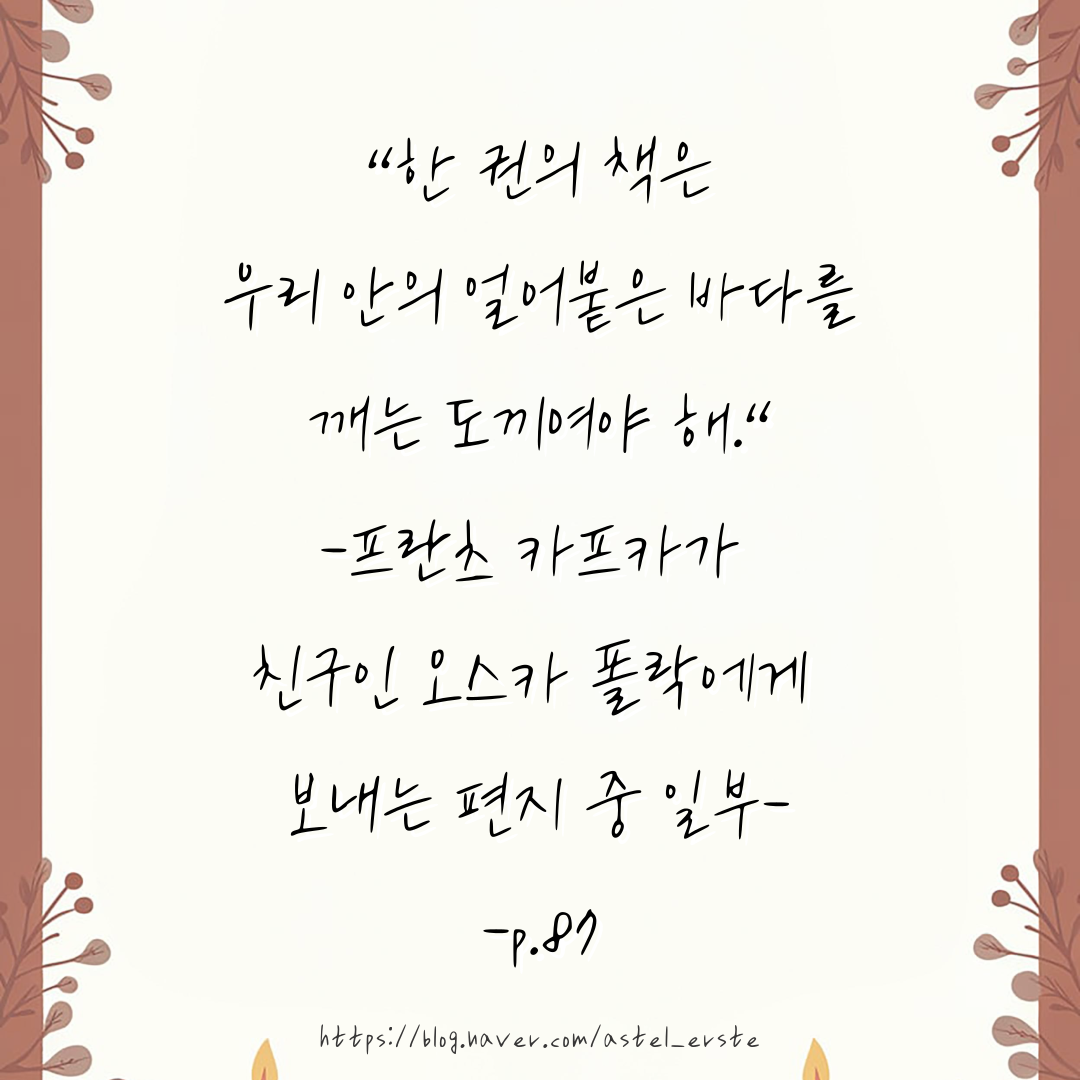 “한 권의 책은
우리 안의 얼어붙은 바다를
깨는 도끼여야 해.“
-프란츠 카프카가
친구인 오스카 폴락에게
보내는 편지 중 일부-
-p.87
https://blog.naver.com/astel_erste